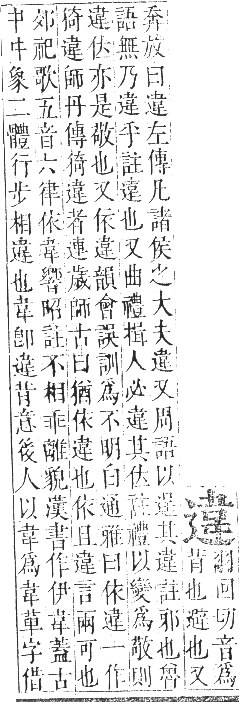 違
羽回切音為
背也避也又
奔放曰違左傳凡諸侯之大夫違又周語以逞其違註邪也魯
語無乃違乎註違也又曲禮揖人必違其位註禮以變為敬則
違位亦是敬也又依違韻會誤訓為不明白通雅曰依違一作
猗違師丹傳猗違者連歲師古曰猶依違也依且違言兩可也
郊祀歌五音六律依韋響昭註不相乖離貌漢書作伊韋蓋古
象二體行步相違也韋卽違背意後人以韋為韋革字借